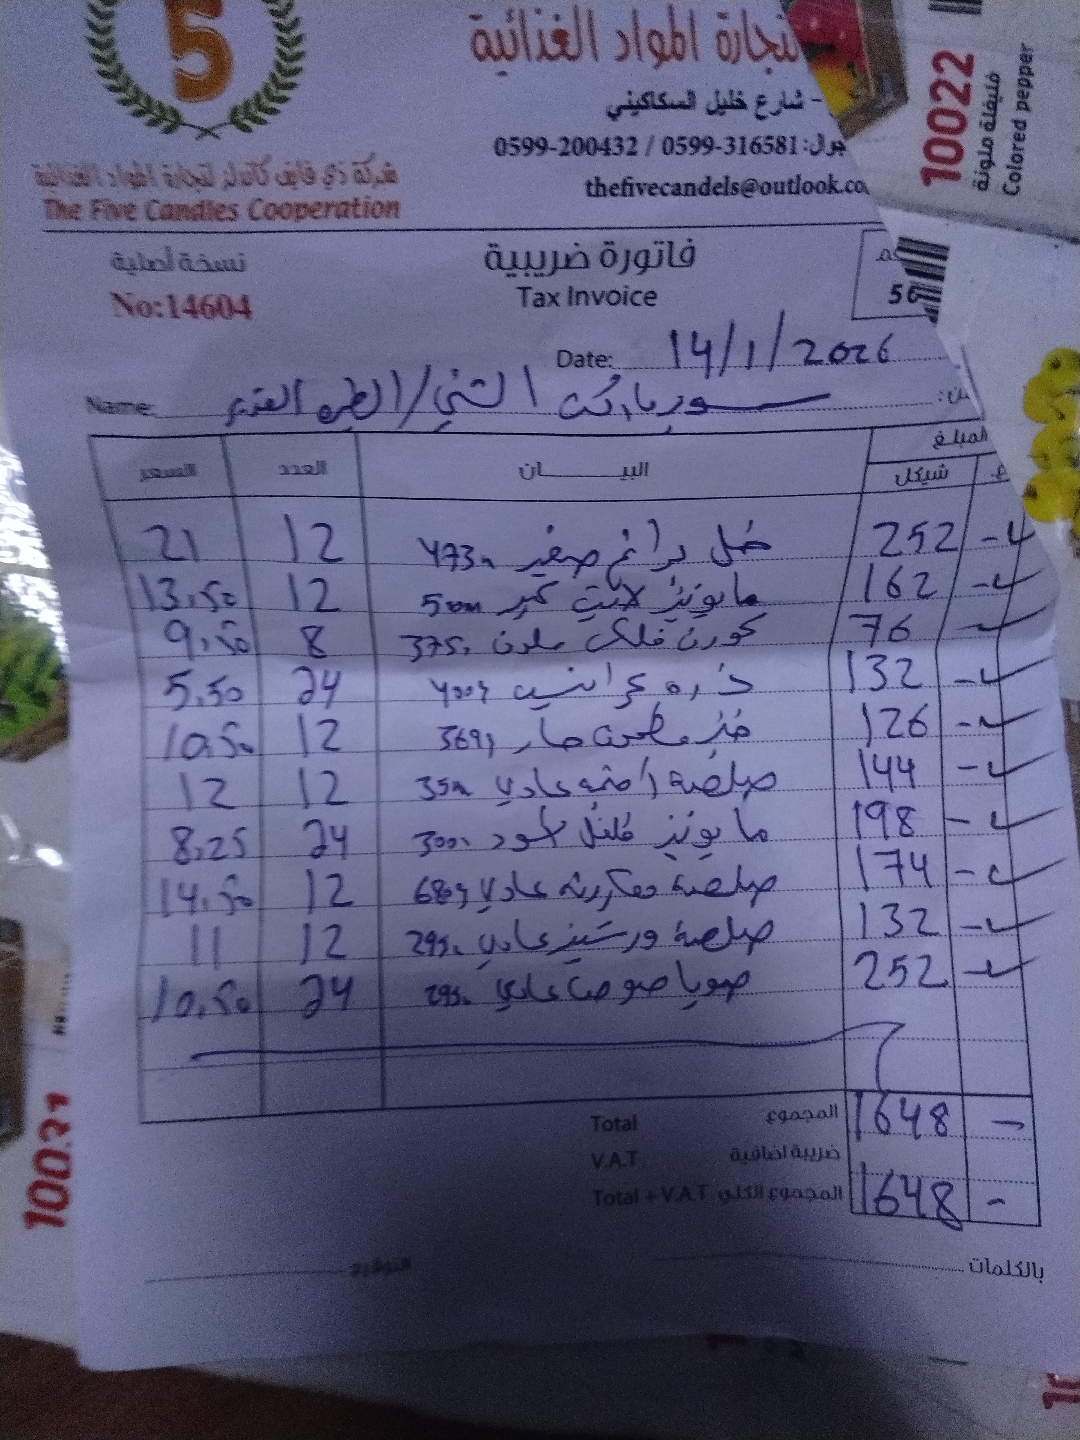 5
لتجارة المواد الغذائية
- شارع خليل السكاكيني
جوال: 0599-316581 / 0599-200432
thefivecandels@outlook.co
شركة ذي فايف كاندلز لتجارة المواد الغذائية
The Five Candles Cooperation
نسخة أصلية
فاتورة ضريبية
No:14604
Tax Invoice
56
Date: 14/1/2026
Name: سوبرماركت
المبلغ
السعر العدد البيـــــــان شيكل
21 12 خل صغير 473 252 -
13.50 12 مايونيز لايت كبير 500 162 -
9.50 8 كورن فلكس ملون 375 76 -
5.50 24 ذره 400g 132 -
10.50 12 خبز حار 369g 126 -
12 12 صلصة عادي 35 144 -
8.25 24 مايونيز فلفل اسود 300 198 -
14.50 12 صلصة عادي 680g 174 -
11 12 صلصة ورشستر عادي 295 132 -
10.50 24 صويا صوص عادي 295 252 -
Total المجموع 1648 -
V.A.T ضريبة اضافية
Total + V.A.T المجموع الكلي 1648 -
التوقيع
بالكلمات
10022
فليفلة ملونة
Colored pepper
10031